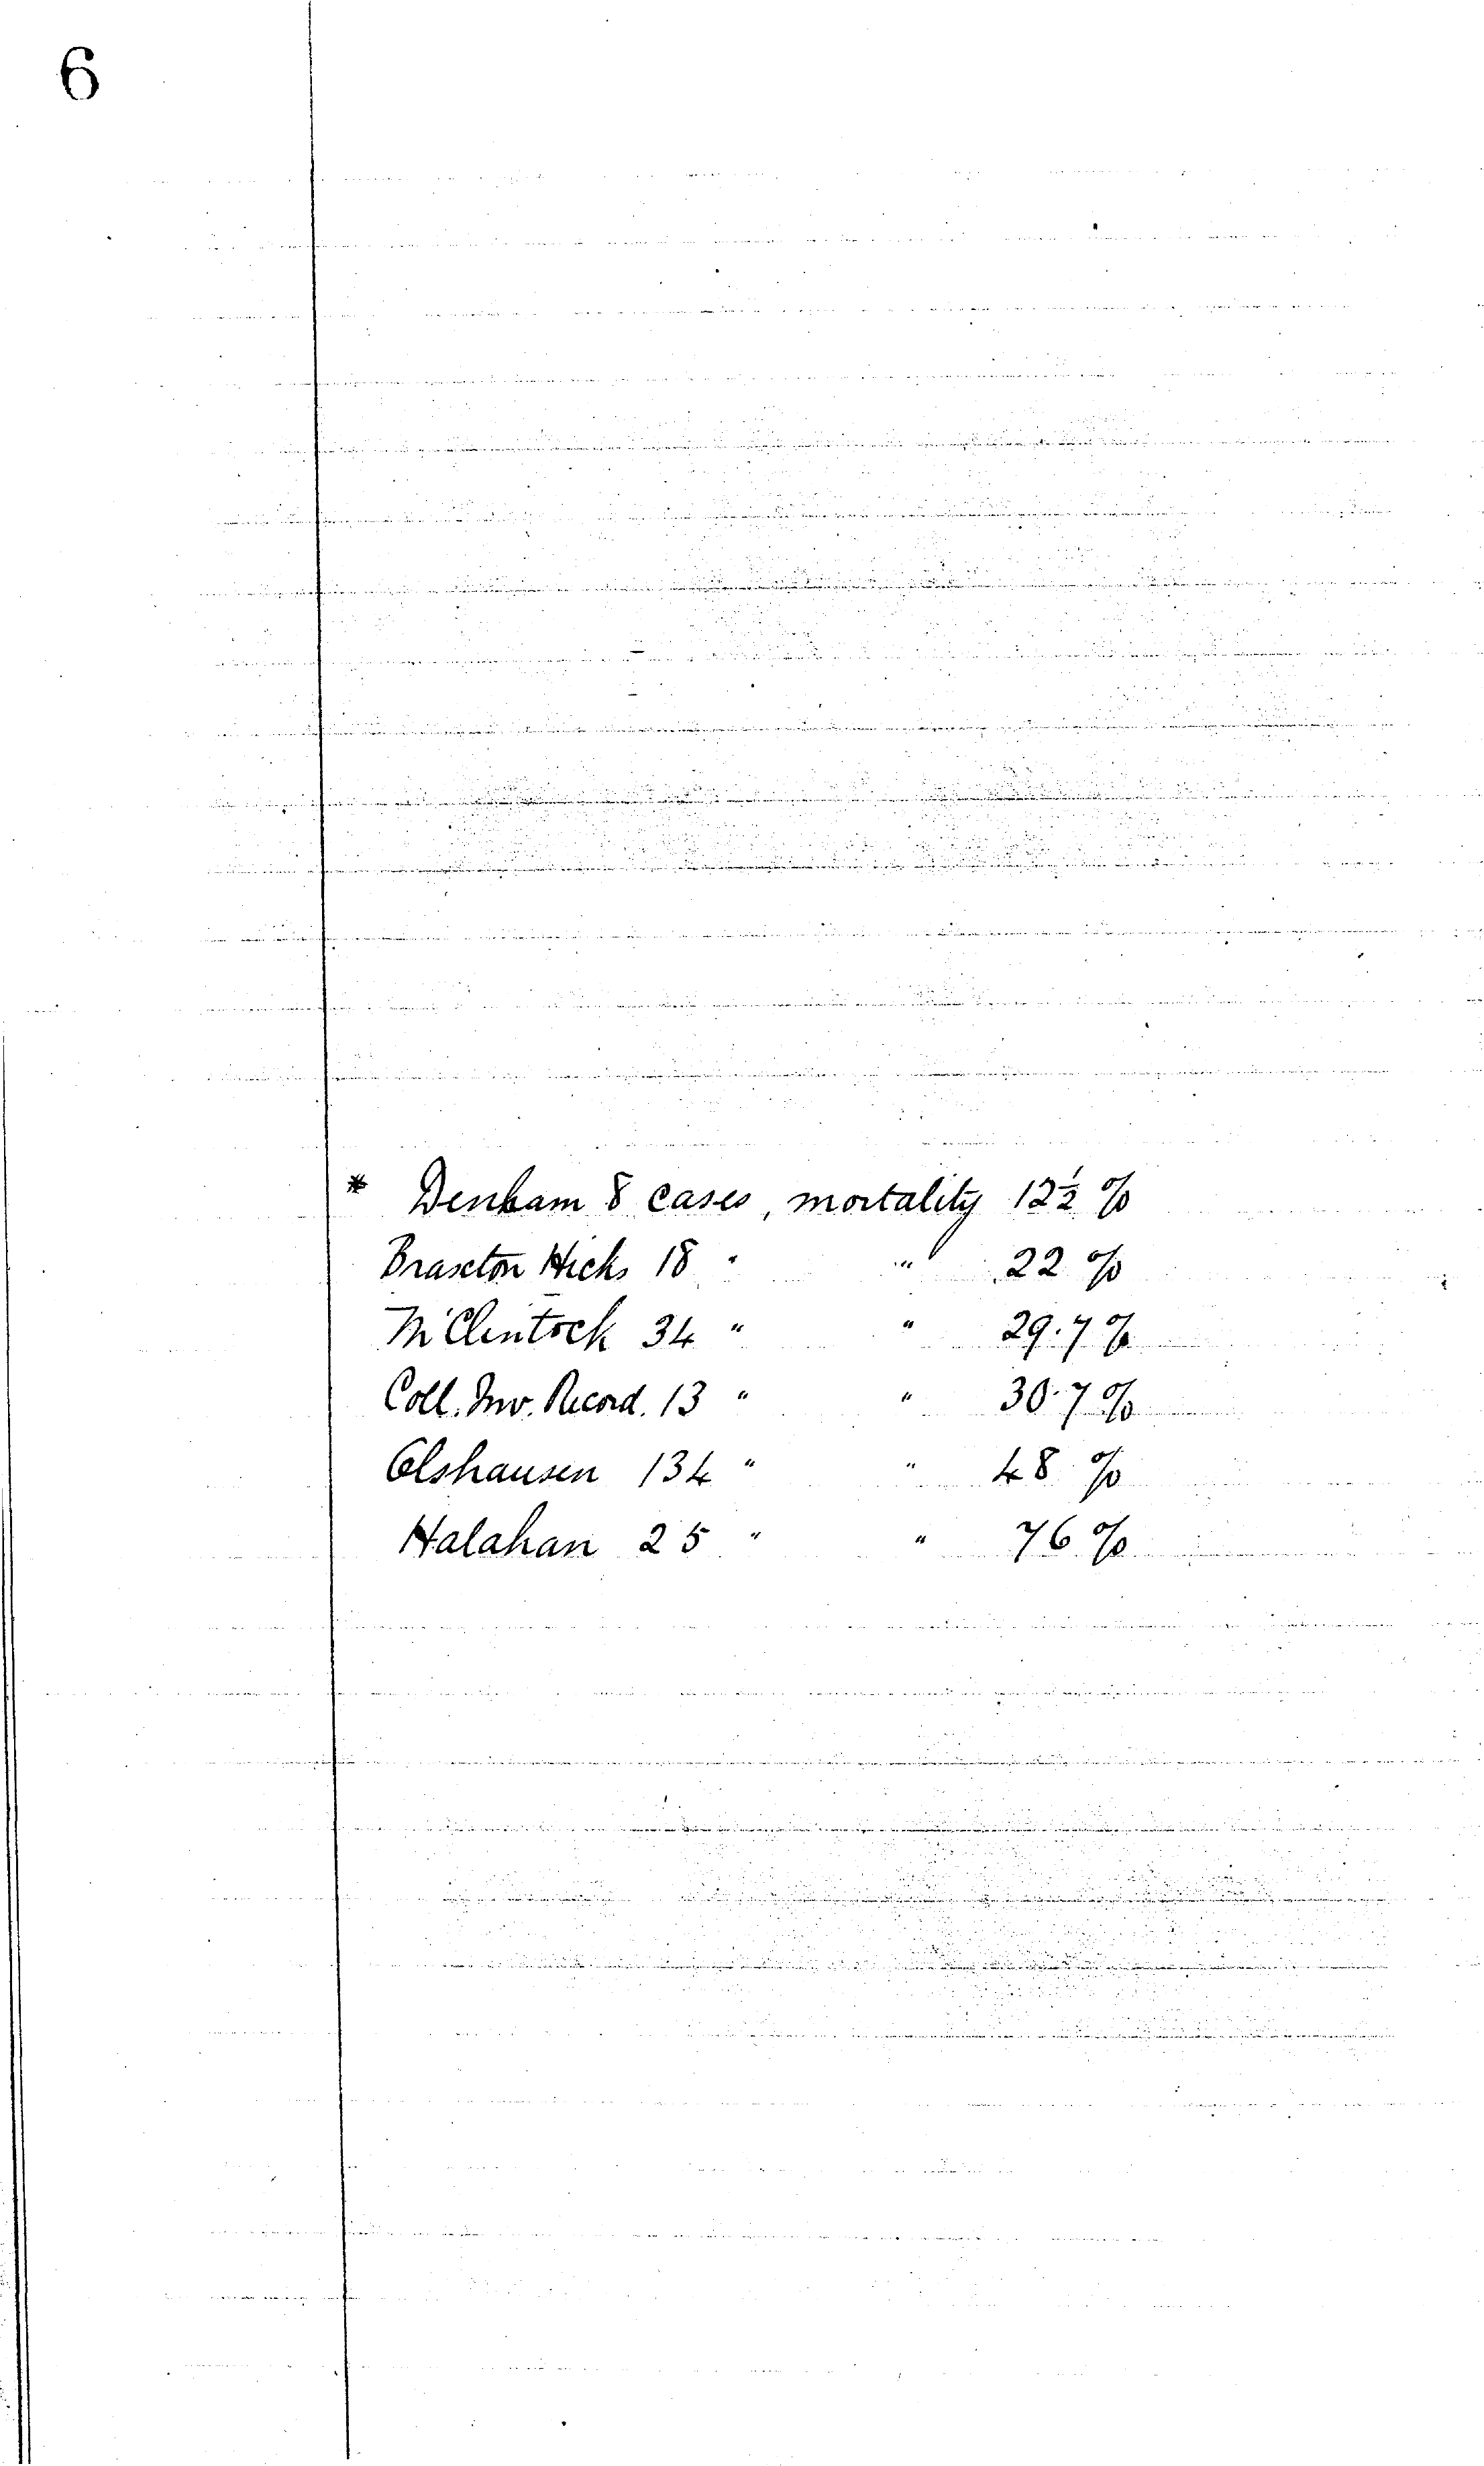 6
* Denham 8 cases, mortality 12½ %
Braxton Hicks 18 " " 22 %
McClintock 34 " " 29.7 %
Coll. Inv. Record. 13 " " 30.7 %
Olshausen 134 " " 48 %
Halahan 25 " " 76 %